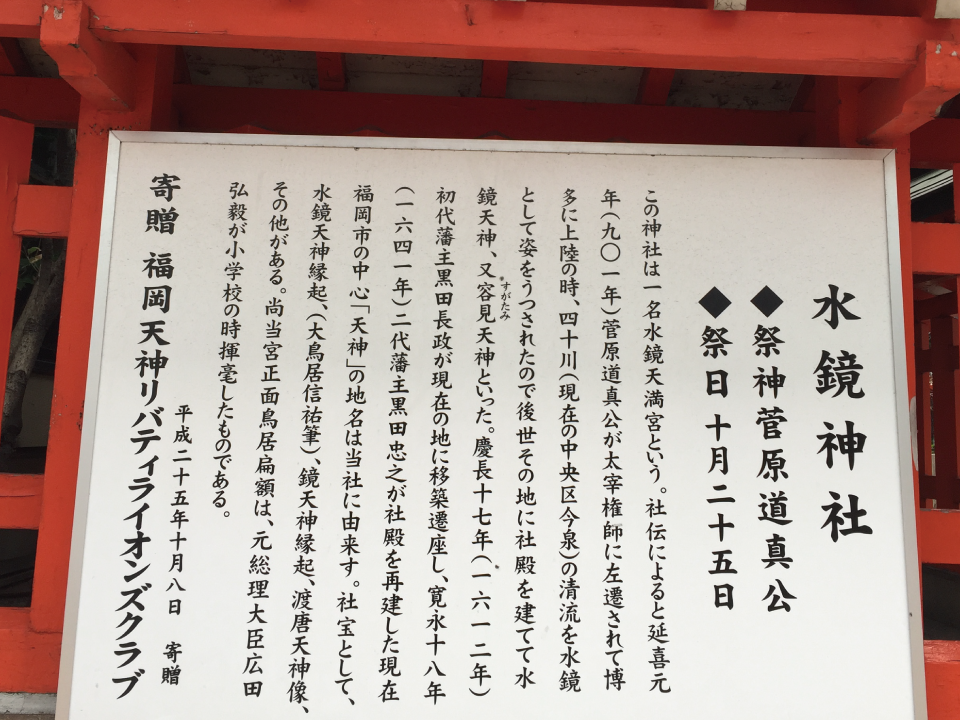 水鏡神社
◆祭神菅原道真公
◆祭日 十月二十五日
この神社は一名水鏡天満宮という。社伝によると延喜元
年(九〇一年)菅原道真公が太宰権師に左遷されて博
多に上陸の時、四十川(現在の中央区今泉)の清流を水鏡
として姿をうつされたので後世その地に社殿を建てて水
鏡天神、又容見天神といった。慶長十七年(一六一二年)
すがたみ
初代藩主黒田長政が現在の地に移築遷座し、寛永十八年
(一六四一年)二代藩主黒田忠之が社殿を再建した現在
福岡市の中心「天神」の地名は当社に由来す。社宝として、
水鏡天神縁起、(大鳥居信祐筆)、鏡天神縁起、渡唐天神像、
その他がある。尚当宮正面鳥居扁額は、元総理大臣広田
弘毅が小学校の時揮毫したものである。
平成二十五年十月八日 寄贈
寄贈 福岡天神リバティライオンズクラブ